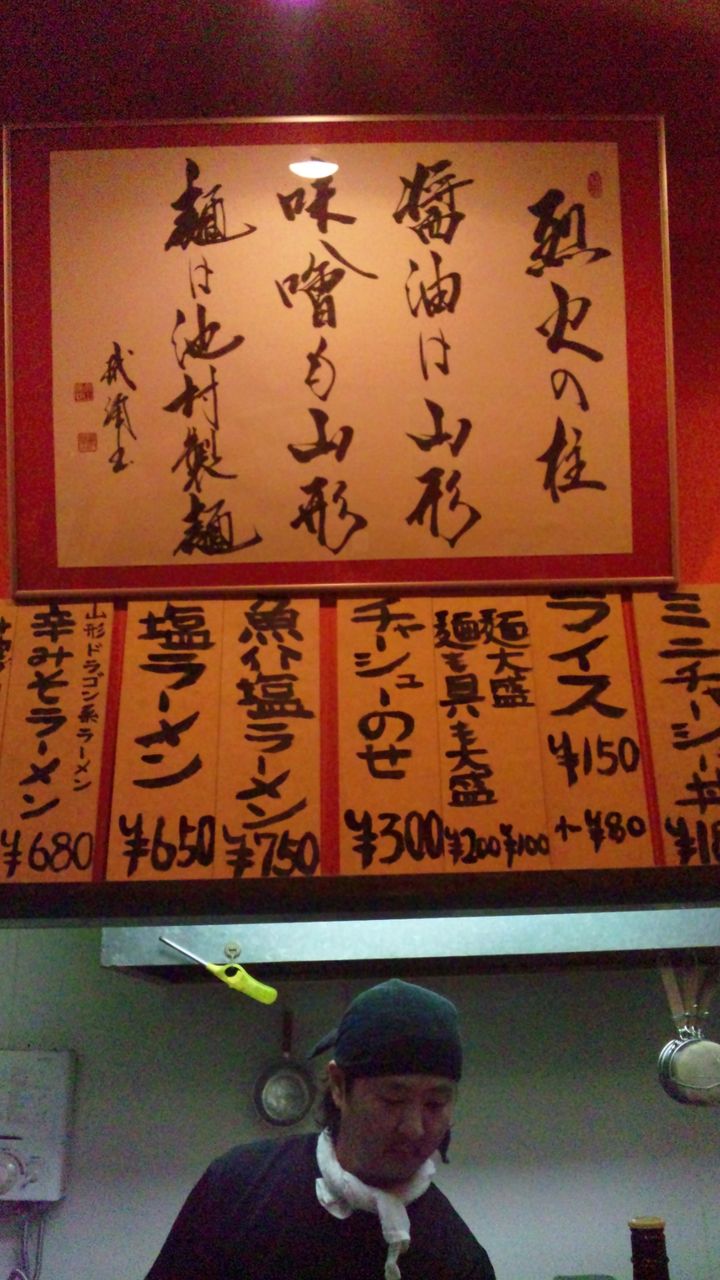 烈火の柱
醤油は山形
味噌も山形
麺は池村製麺
ミニチャーシュー丼
ライス
¥150
+¥80
麺大盛
¥100
麺も具も大盛
¥200
チャーシューのせ
¥300
魚介塩ラーメン
¥750
塩ラーメン
¥650
山形ドラゴン系ラーメン
辛みそラーメン
¥680